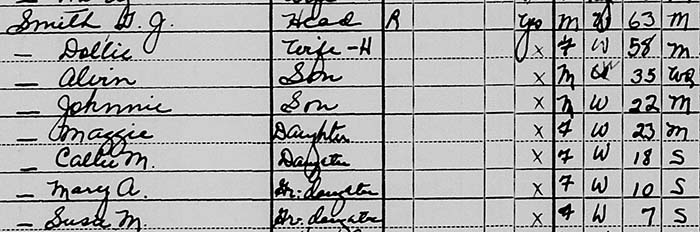 Smith G. J. Head R Yes M W 63 M
— Dollie Wife-H x F W 58 M
— Alvin Son x M W 35 Wd
— Johnnie Son x M W 22 M
— Maggie Daughter x F W 23 M
— Callie M. Daughter x F W 18 S
— Mary A. Gr. daughter x F W 10 S
— Susa M. Gr. daughter x F W 7 S